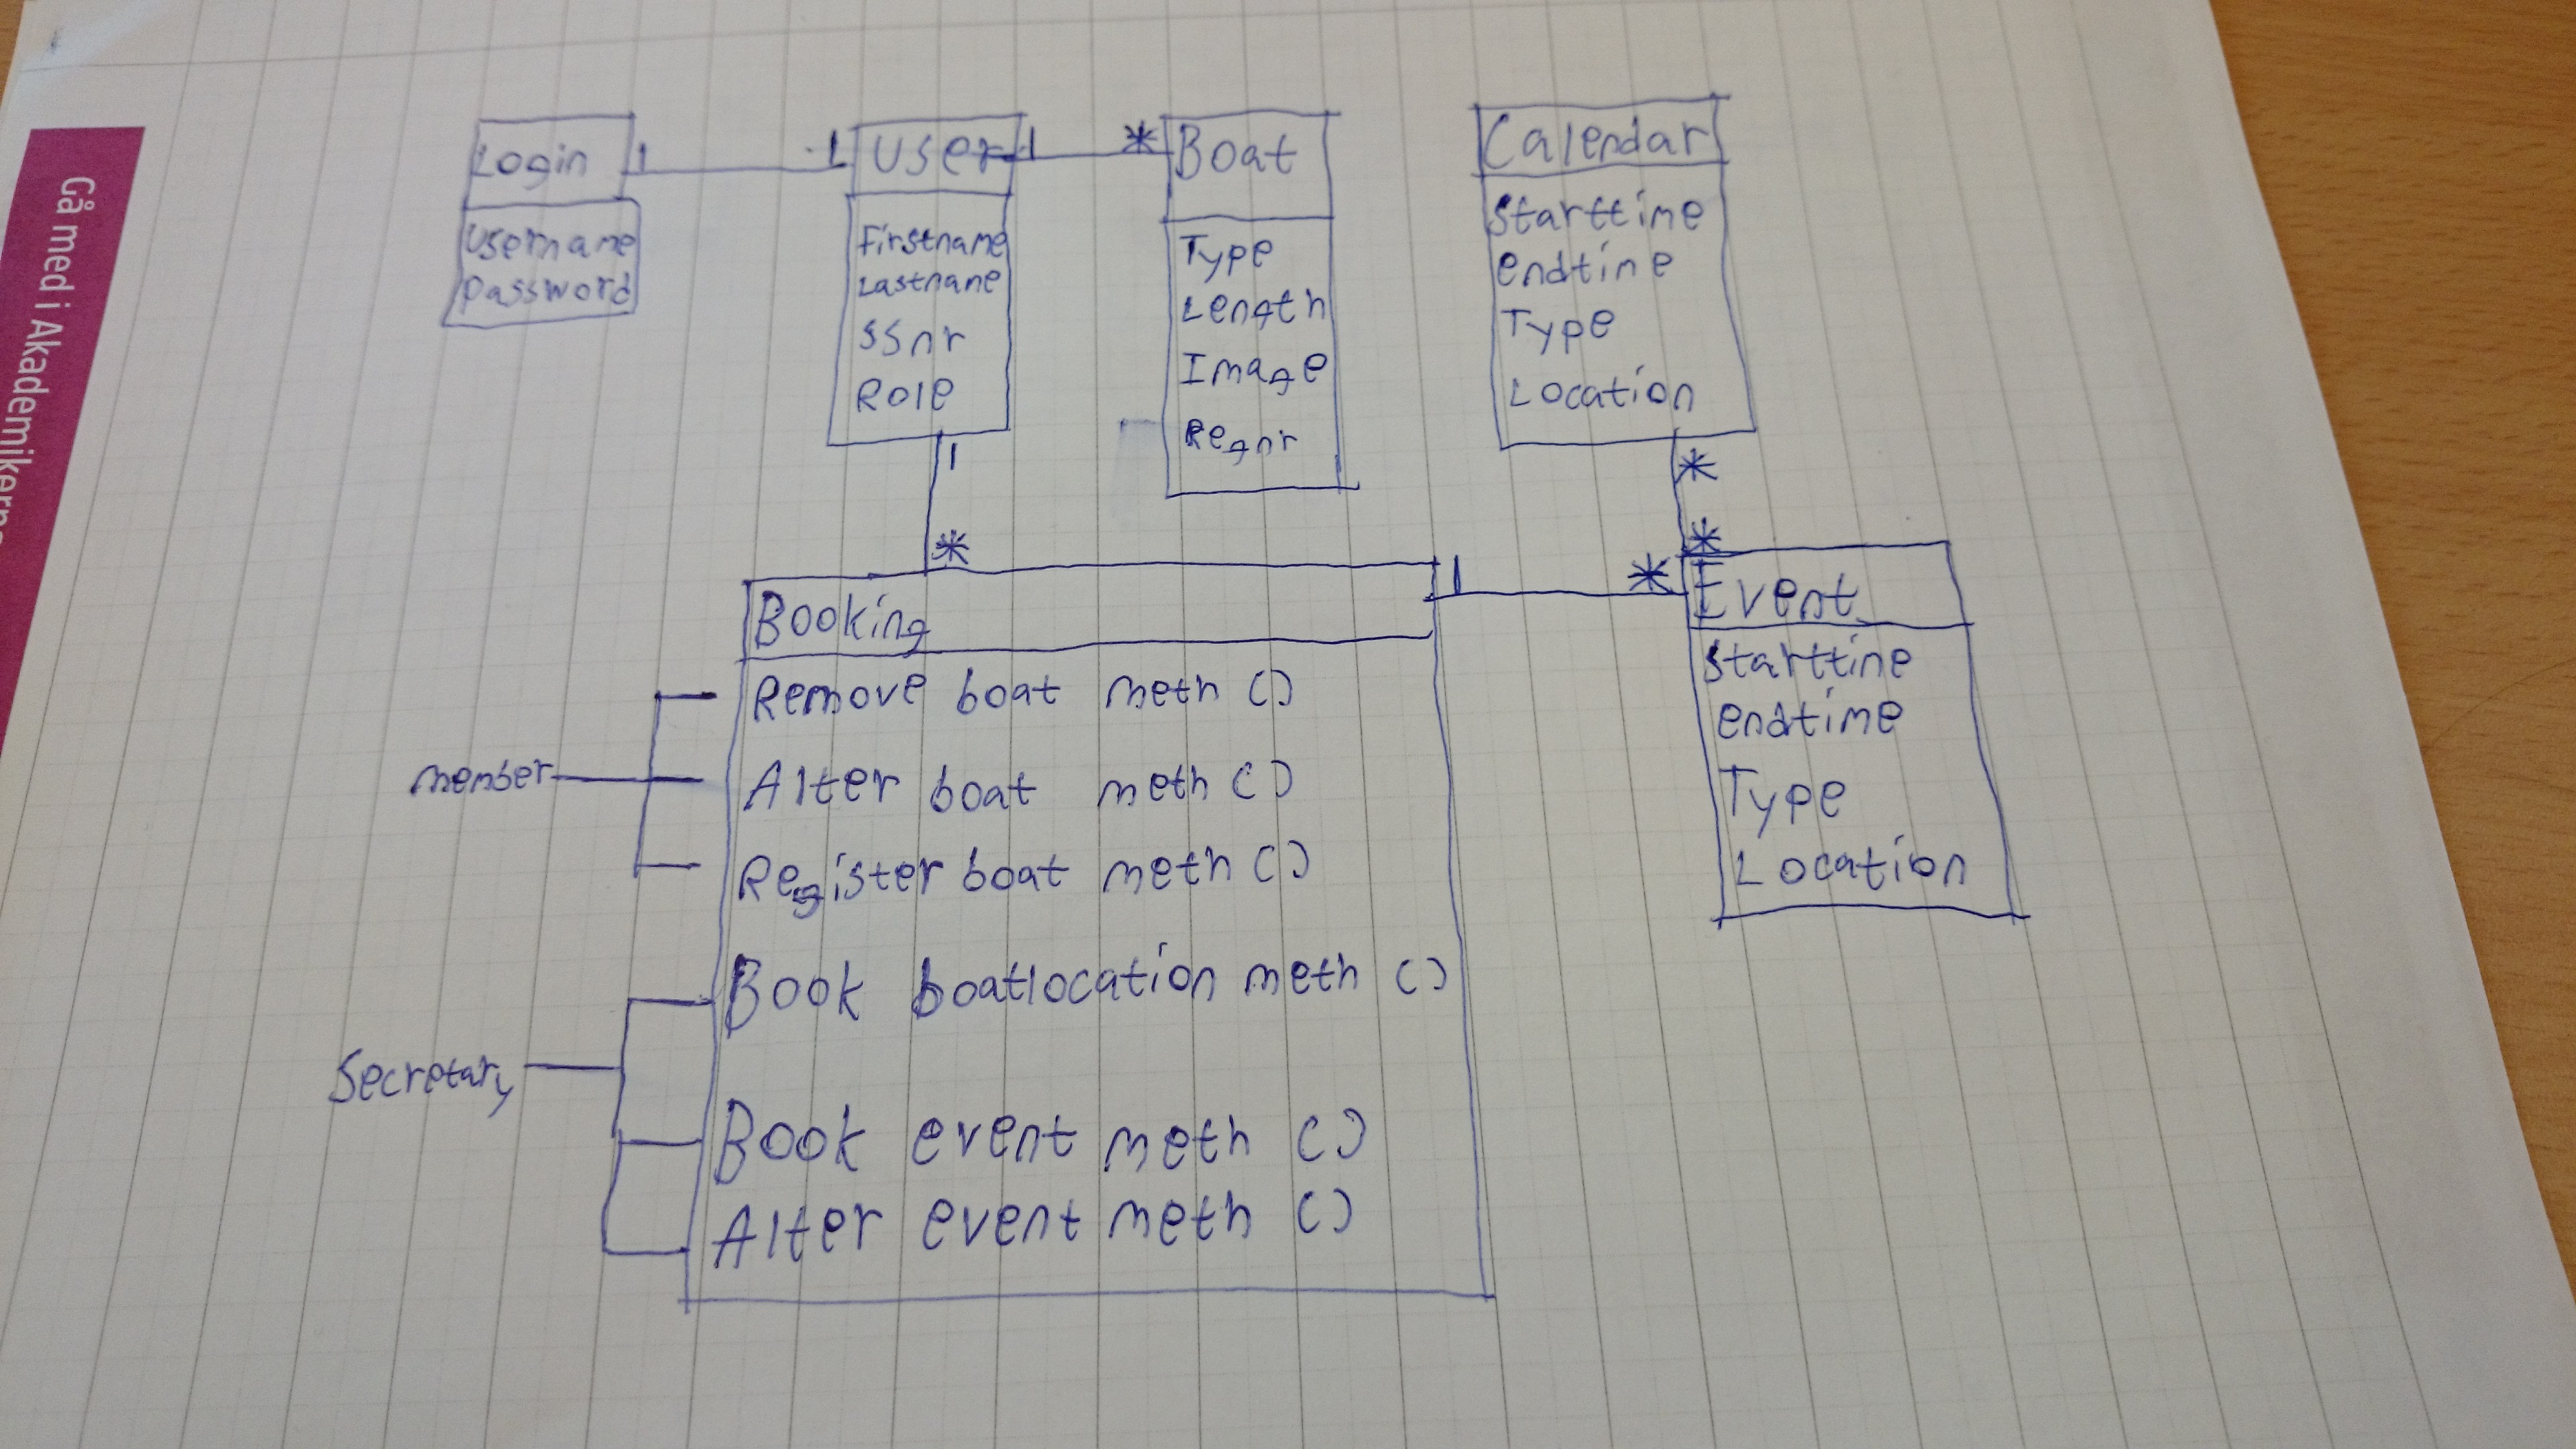 Gå med i Akademikerna
Login
Username
Password
1
1
User
Firstname
Lastname
SSnr
Role
1
*
Boat
Type
Length
Image
Regnr
Calendar
Starttime
endtine
Type
Location
1
*
*
*
Booking
Remove boat meth ()
Alter boat meth ()
Register boat meth ()
Book boatlocation meth ()
Book event meth ()
Alter event meth ()
member
Secretary
1
*
Event
Starttine
endtime
Type
Location